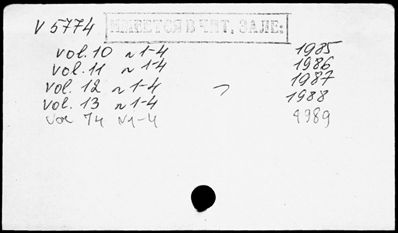 V 5774 ИМЕЕТСЯ В ЧИТ. ЗАЛЕ:
vol. 10 N 1-4 1985
vol. 11 N 1-4 1986
vol. 12 N 1-4 1987
vol. 13 N 1-4 1988
vol 14 N 1-4 1989